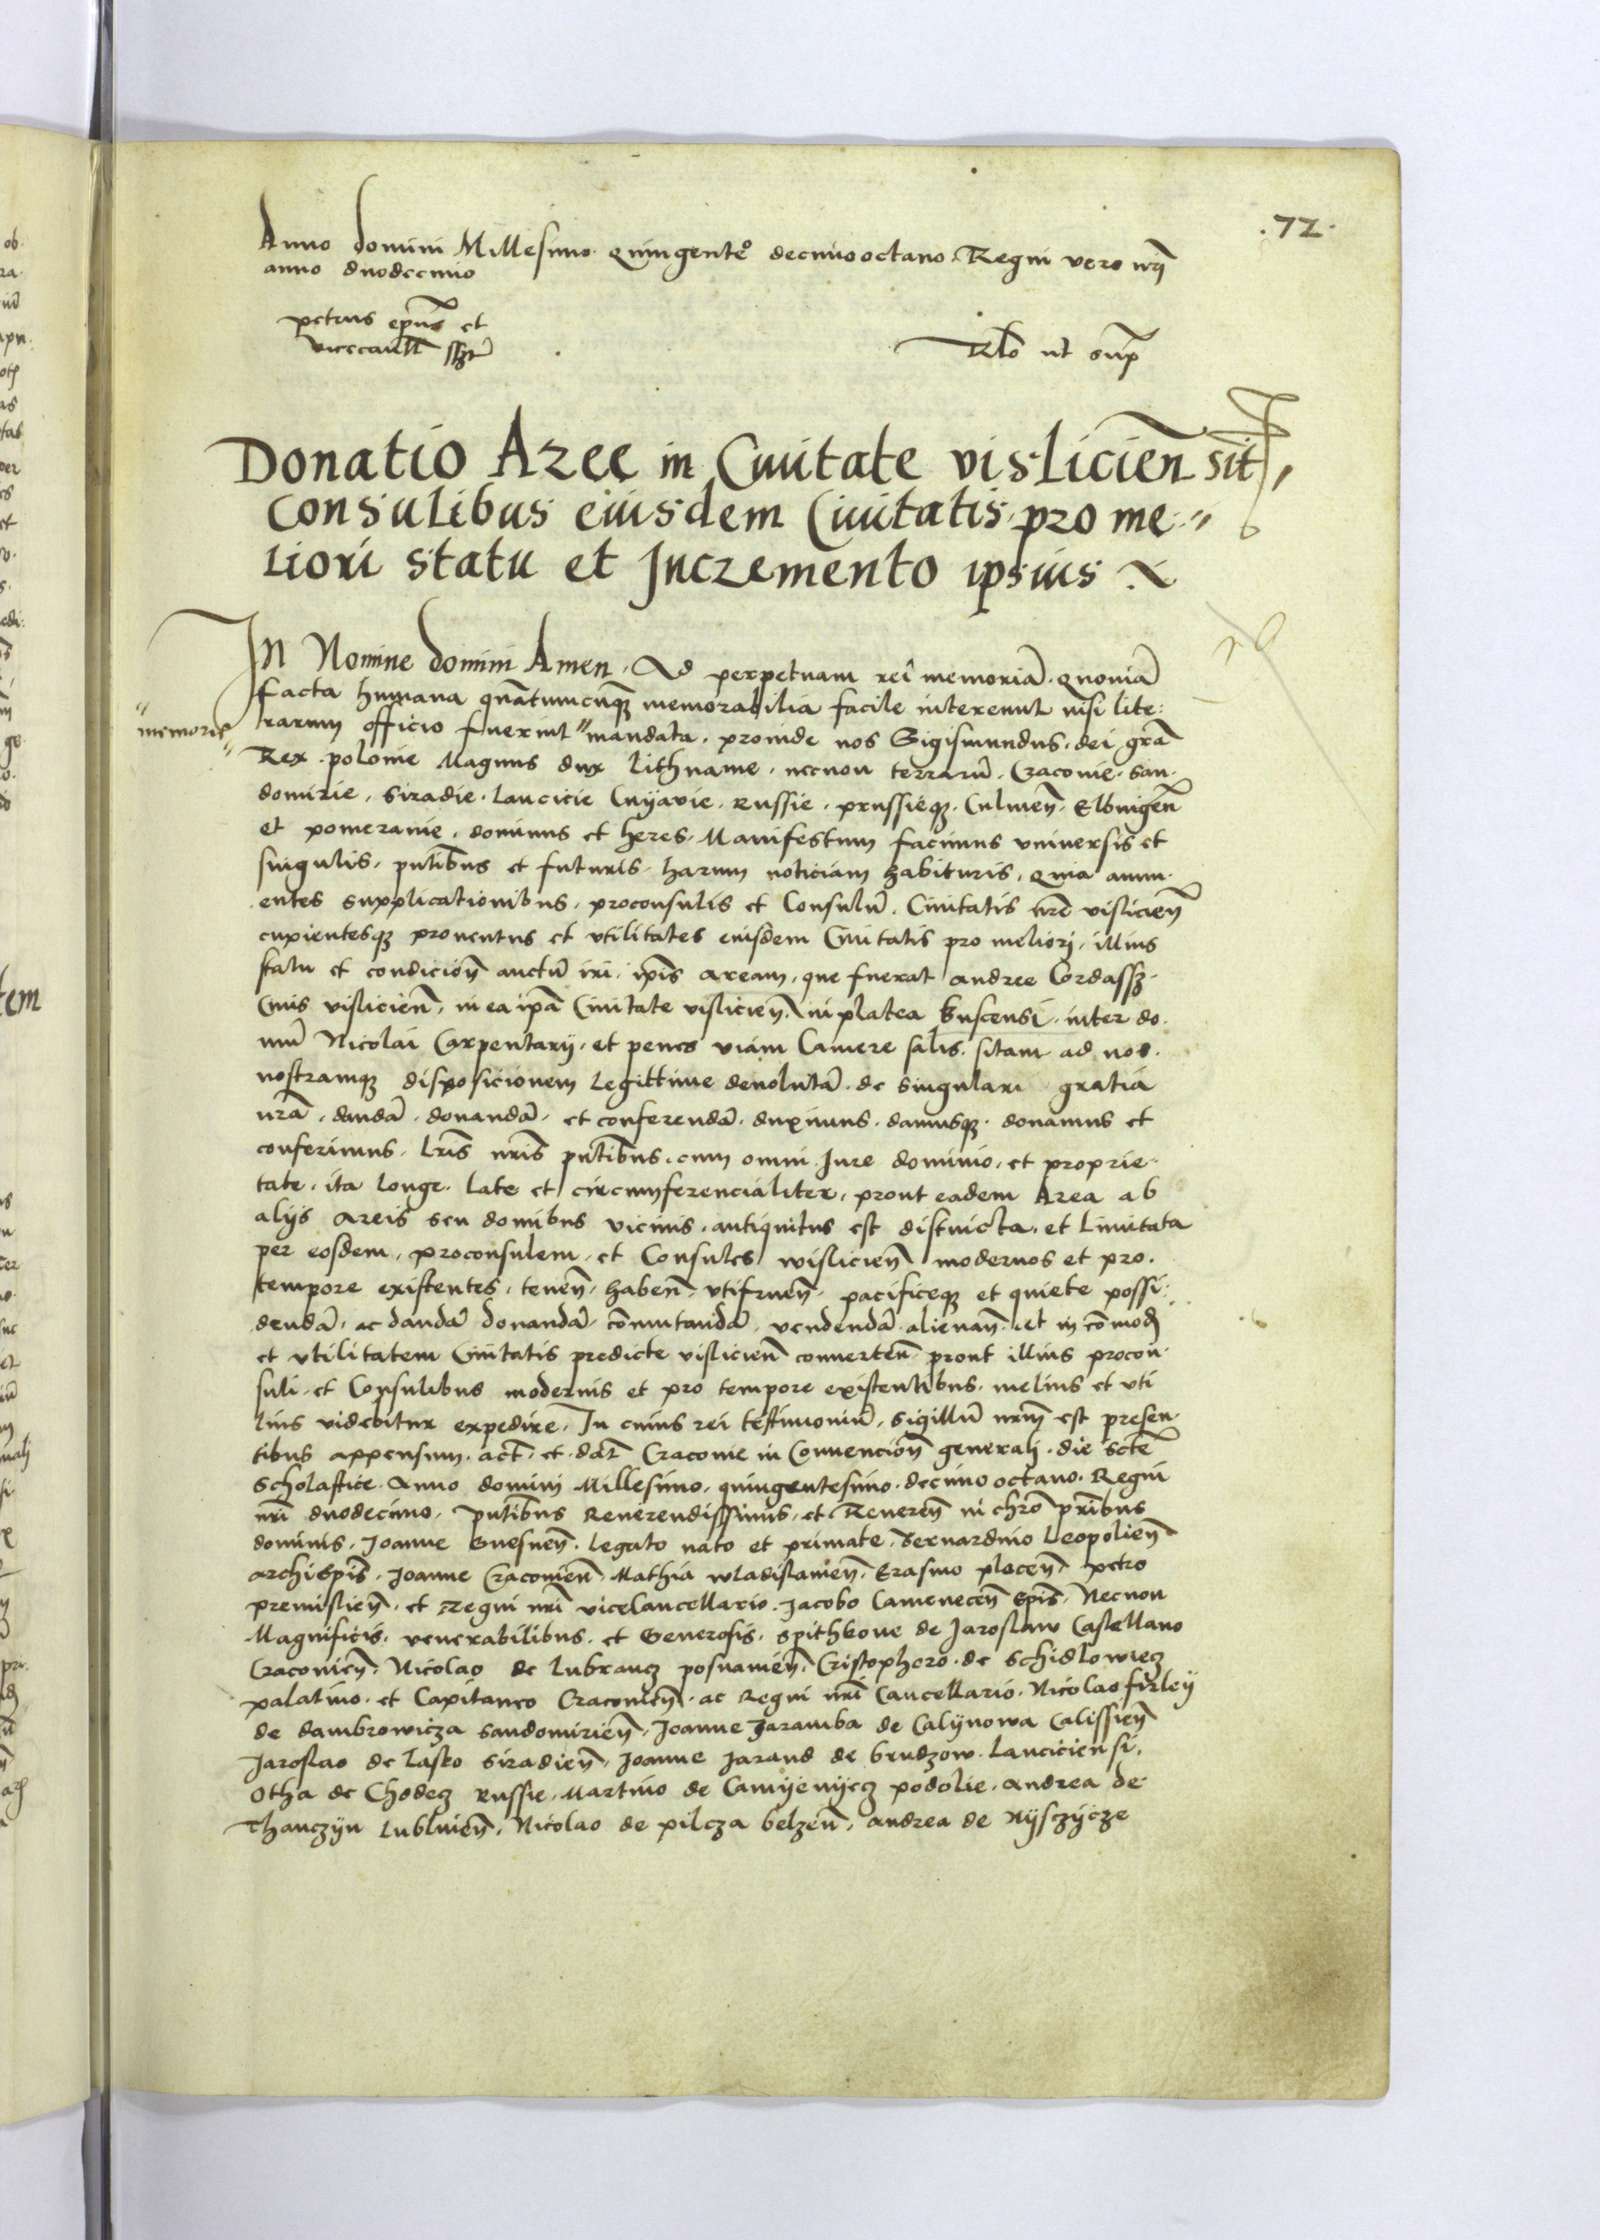 .72.
Anno domini Millesimo quingente͂o decimooctavo. Regni vero nr̄i
anno duodecimo
petrus ep̄us et
vicecanll̄ ssz̄t
Rl̄o ut sup̄
Donatio Aree in Civitate vislicien̄ sit
consulibus eiusdem Civitatis pro me-
liori statu et Incremento ipsius
In Nomine domini Amen. Ad perpetuam rei memoriā. quoniā
facta humana quātumcūqꝫ memorabilia facile intereunt nisi lite:
rarum officio fuerint " mandata. proinde nos Sigismundus. dei gr̄a
"memorie"
Rex polonie Magnus dux lithuanie. necnon terrarū. Cracovie. San-
domirie. Siradie. Lancicie Cuyavie. Russie. prussieqꝫ. Culmen̄. Elbingen̄
et pomeranie. dominus et heres. Manifestum facimus universis et
singulis. pn̄tibus et futuris. harum noticiam habituris. Quia annu-
entes supplicationibus. proconsulis et Consulū. Civitatis nr̄e vislicien̄
cupientesqꝫ proventus et utilitates eiusdem Civitatis pro meliori. illius
statu et condicion̄ auctū iri. ip̄is aream. que fuerat andree Cordassz.
Civis vislicien̄. in ea ip̄a Civitate vislicien̄. in platea buscensi. inter do-
mū Nicolai Carpentarij. et penes viam Camere salis. sitam ad nos.
nostramqꝫ disposicionem legittime devolutā. de singulari gratia
nr̄a. dandā. donandā. et conferendā. duximus. damusqꝫ. donamus et
conferimus. lr̄is nr̄is pn̄tibus. cum omni Iure dominio. et proprie-
tate. ita longe. late et circumferencialiter. prout eadem Area ab
alijs areis seu domibus vicinis. antiquitus est distincta. et limitata
per eosdem. proconsulem. et Consules wislicien̄ modernos et pro.
tempore existentes. tenen̄. haben̄. utifruen̄. pacificeqꝫ et quiete possi-
dendā. ac dandā donandā. cōmutandā. vendendā. alienan̄. et in cōmodū
et utilitatem Civitatis predicte vislicien̄ converten̄ prout illius procon-
suli. et Consulibus modernis et pro tempore existentibus. melius et uti
lius videbitur expedire. In cuius rei testimoniū. sigillū nr̄um est presen-
tibus appensum. act̄. et. dat̄ Cracovie in Convencion̄ generali. die sctē
Scholastice. Anno domini Millesimo. quingentesimo. decimo octavo. Regni
nr̄i duodecimo. pn̄tibus Reverendissimis. et Reveren̄ in chr̄o pr̄ibus
dominis. Joanne Gnesnen̄. legato nato et primate. Bernardino Leopolien̄
archiepīs. Joanne Cracovien̄. Mathia wladislavien̄. Erasmo plocen̄. petro
premislien̄. et Regni nr̄i vicecancellario. Jacobo Camenecen̄ Ep̄is. Necnon
Magnificis. venerabilibus. et Generosis. Spithkone de Jaroslaw Castellano
Cracovien̄. Nicolao de lubrancz posnanien̄. Cristophoro. de Schidlowiecz
palatino. et Capitaneo Cracovien̄. ac Regni nr̄i Cancellario. Nicolao firley
de dambrowicza Sandomirien̄. Joanne Zaramba de Calijnowa Calissien̄
Jaroslao de lasko Siradien̄. Joanne Jarand de brudzow. Lanciciensi.
Otha de Chodecz Russie. Martino de Camijenijecz podolie. Andrea de
Thanczijn lublinen̄. Nicolao de pilcza belzen̄. andrea de Nijsczijcze